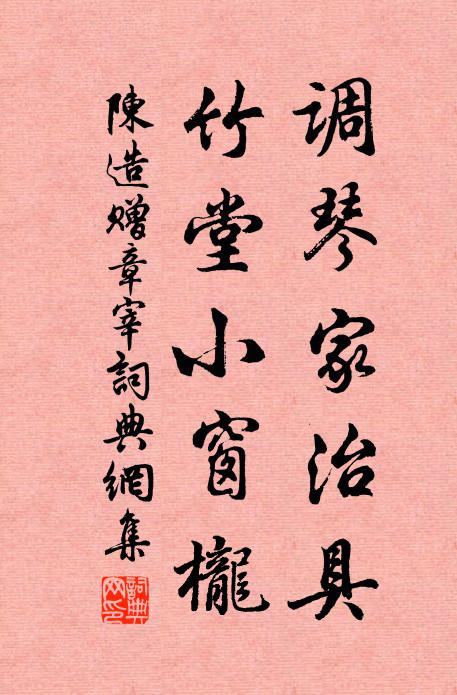 调琴家治具
竹堂小窗櫳
陳造贈章宰詞典網集
詞典网印